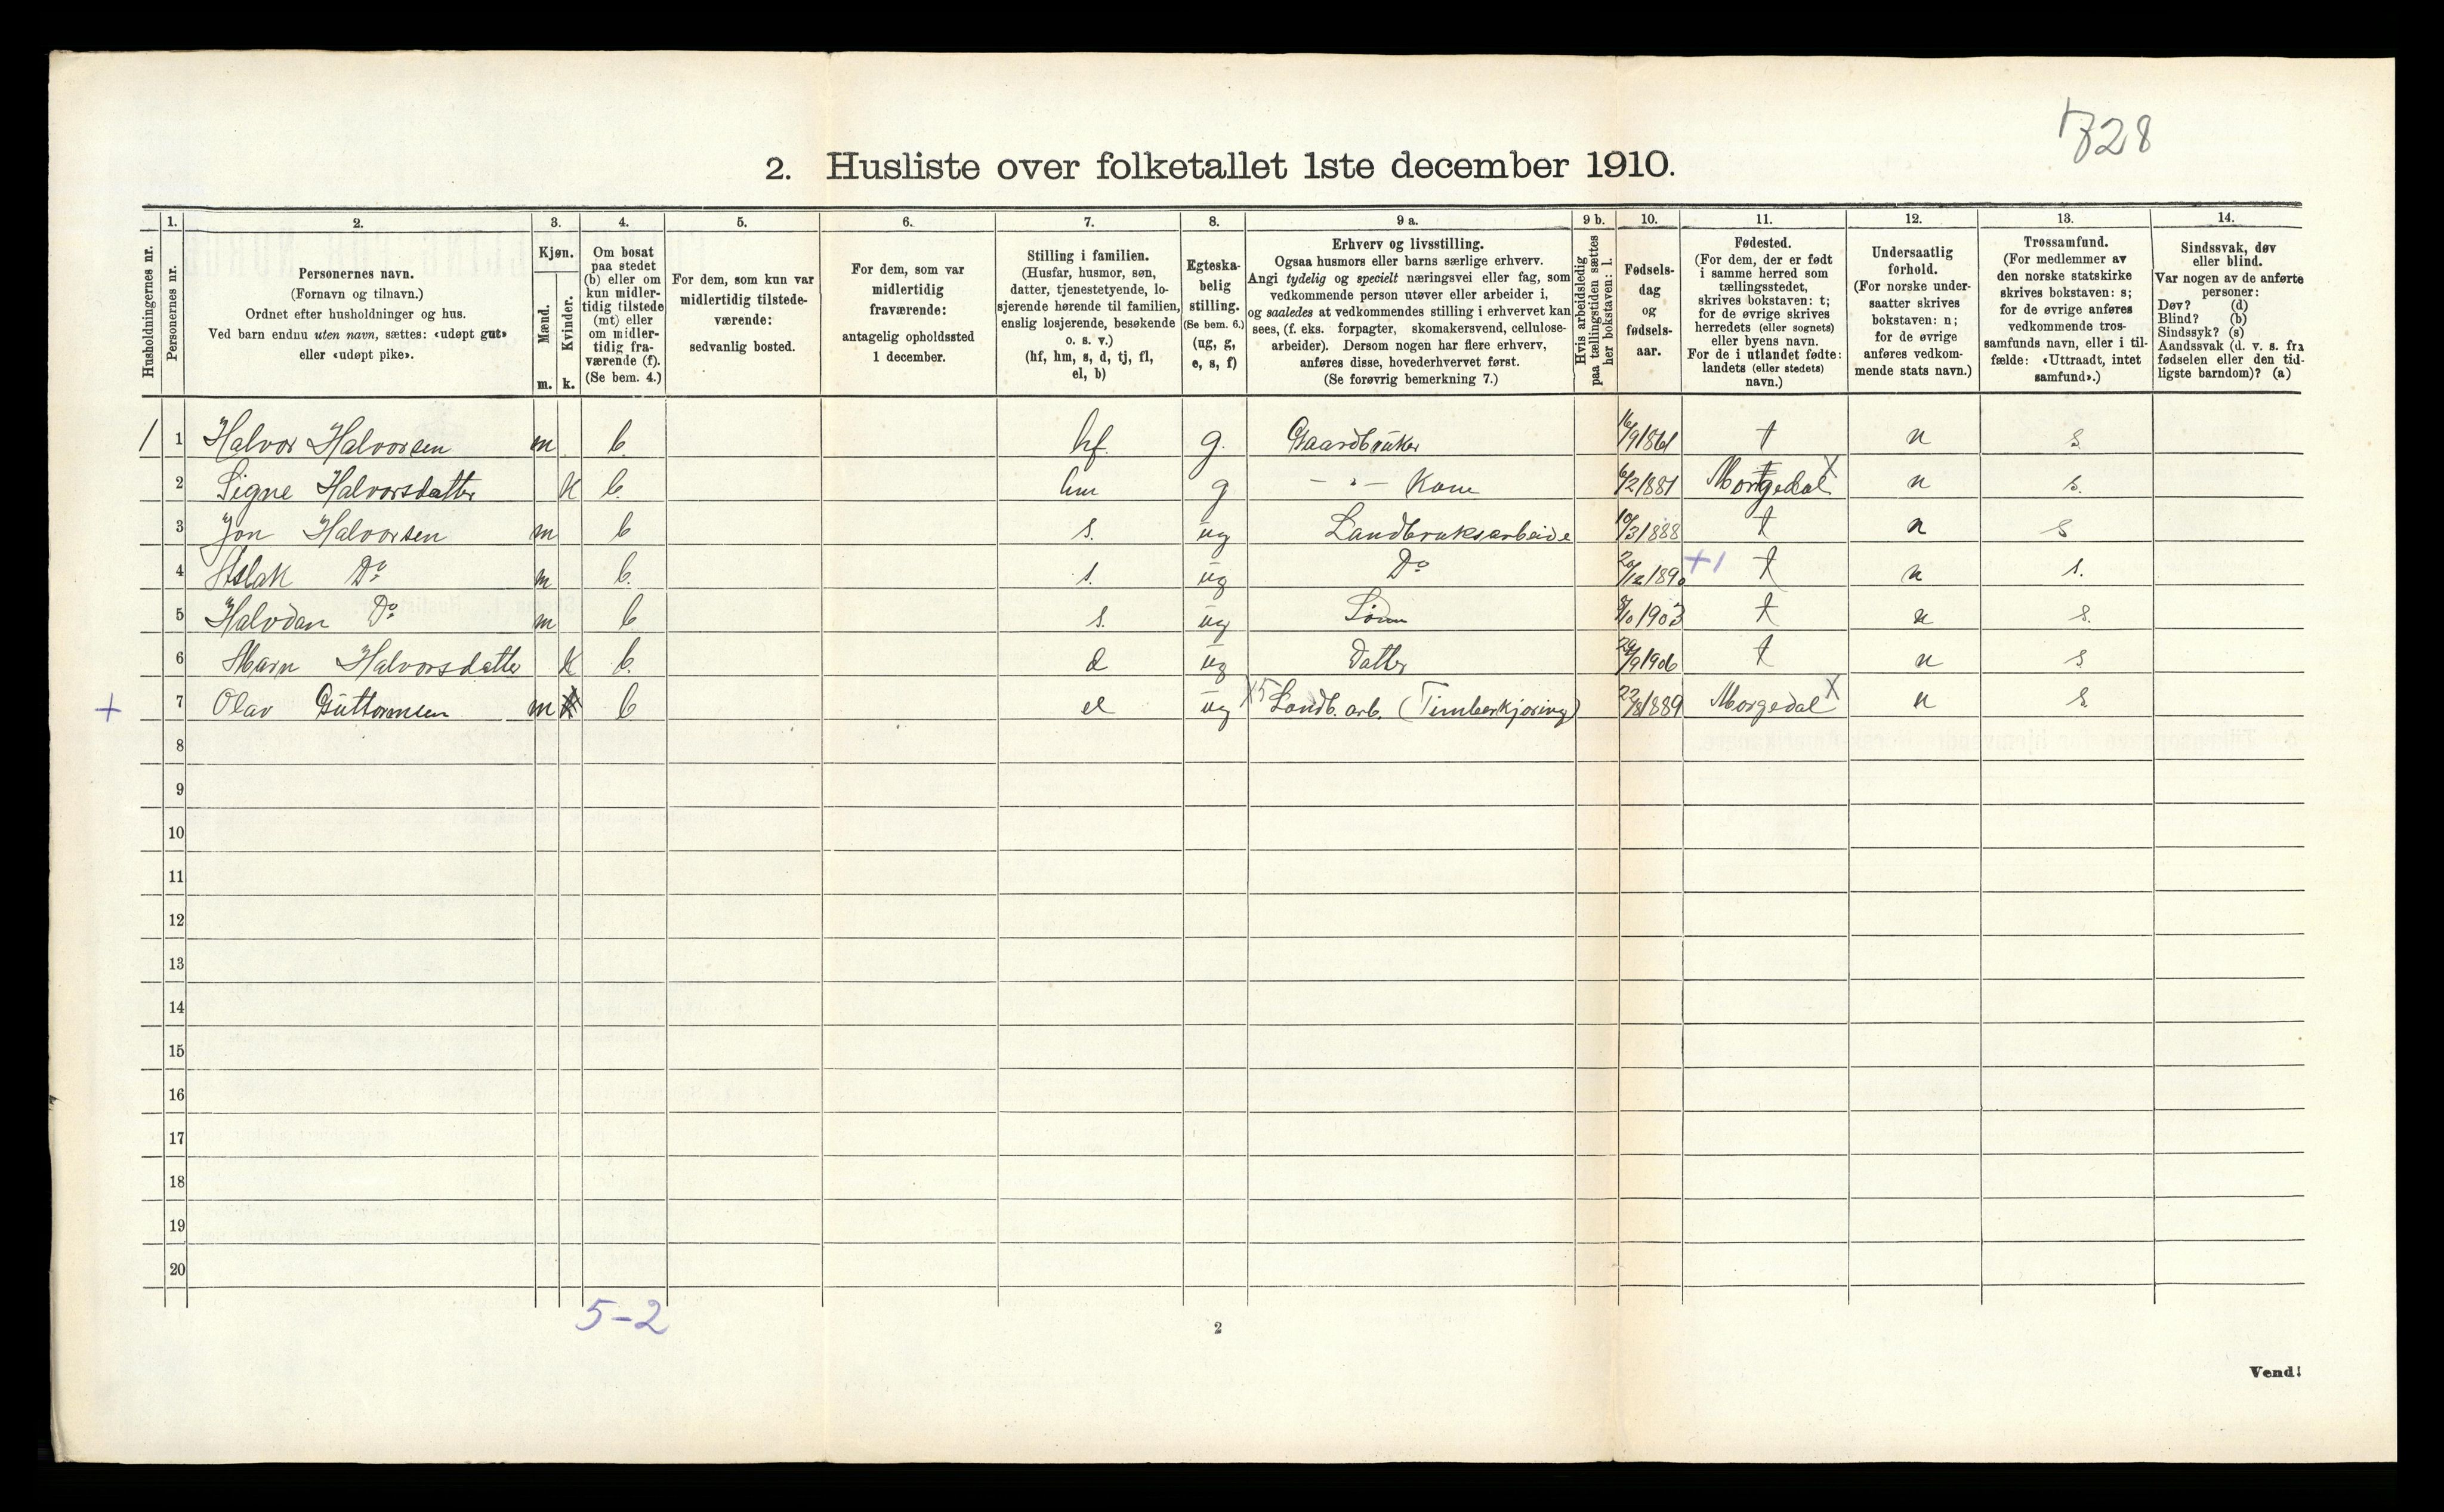 728
2. Husliste over folketallet 1ste december 1910.
Husholdningernes nr.
1.
Personernes nr.
2.
Personernes navn.
(Fornavn og tilnavn.)
Ordnet efter husholdninger og hus.
Ved barn endnu uten navn, sættes: «udøpt gut»
eller «udøpt pike».
3.
Kjøn.
Mænd.
Kvinder.
m. k.
4.
Om bosat
paa stedet
(b) eller om
kun midler-
tidig tilstede
(mt) eller
om midler-
tidig fra-
værende (f).
(Se bem. 4.)
5.
For dem, som kun var
midlertidig tilstede-
værende:
sedvanlig bosted.
6.
For dem, som var
midlertidig
fraværende:
antagelig opholdssted
1 december.
7.
Stilling i familien.
(Husfar, husmor, søn,
datter, tjenestetyende, lo-
sjerende hørende til familien,
enslig losjerende, besøkende
o. s. v.)
(hf, hm, s, d, tj, fl,
el, b)
8.
Egteska-
belig
stilling.
(Se bem. 6.)
(ug, g,
e, s, f)
9 a.
Erhverv og livsstilling.
Ogsaa husmors eller barns særlige erhverv.
Angi tydelig og specielt næringsvei eller fag, som
vedkommende person utøver eller arbeider i,
og saaledes at vedkommendes stilling i erhvervet kan
sees, (f. eks. forpagter, skomakersvend, cellulose-
arbeider). Dersom nogen har flere erhverv,
anføres disse, hovederhvervet først.
(Se forøvrig bemerkning 7.)
9 b.
Hvis arbeidsledig
paa tællingstiden sættes
her bokstaven: l.
10.
Fødsels-
dag
og
fødsels-
aar.
11.
Fødested.
(For dem, der er født
i samme herred som
tællingsstedet,
skrives bokstaven: t;
for de øvrige skrives
herredets (eller sognets)
eller byens navn.
For de i utlandet fødte:
landets (eller stedets)
navn.)
12.
Undersaatlig
forhold.
(For norske under-
saatter skrives
bokstaven: n;
for de øvrige
anføres vedkom-
mende stats navn.)
13.
Trossamfund.
(For medlemmer av
den norske statskirke
skrives bokstaven: s;
for de øvrige anføres
vedkommende tros-
samfunds navn, eller i til-
fælde: «Uttraadt, intet
samfund».)
14.
Sindssvak, døv
eller blind.
Var nogen av de anførte
personer:
Døv? (d)
Blind? (b)
Sindssyk? (s)
Aandssvak (d. v. s. fra
fødselen eller den tid-
ligste barndom)? (a)
1 1 Halvor Halvorsen m b. hf. g. Gaardbruker 16/9 1861 t n s.
2 Signe Halvorsdatter k b. hm g — " — Kone 6/2 1881 Morgedal X n s.
3 Jon Halvorsen m b s. ug Landbruksarbeide 10/3 1888 t n s
4 Aslak Do m b. s. ug Do 20/12 1890 +1 t n s.
5 Halvdan Do m b s. ug Sönn 8/10 1903 t n s.
6 Marn Halvorsdatter k b. d ug datter 29/9 1906 t n s
+ 7 Olav Guttormsen m k b el ug X5 Landb. arb. (Timberkjøring) 22/8 1889 Morgedal X n s.
8
9
10
11
12
13
14
15
16
17
18
19
20
5-2
2
Vend!